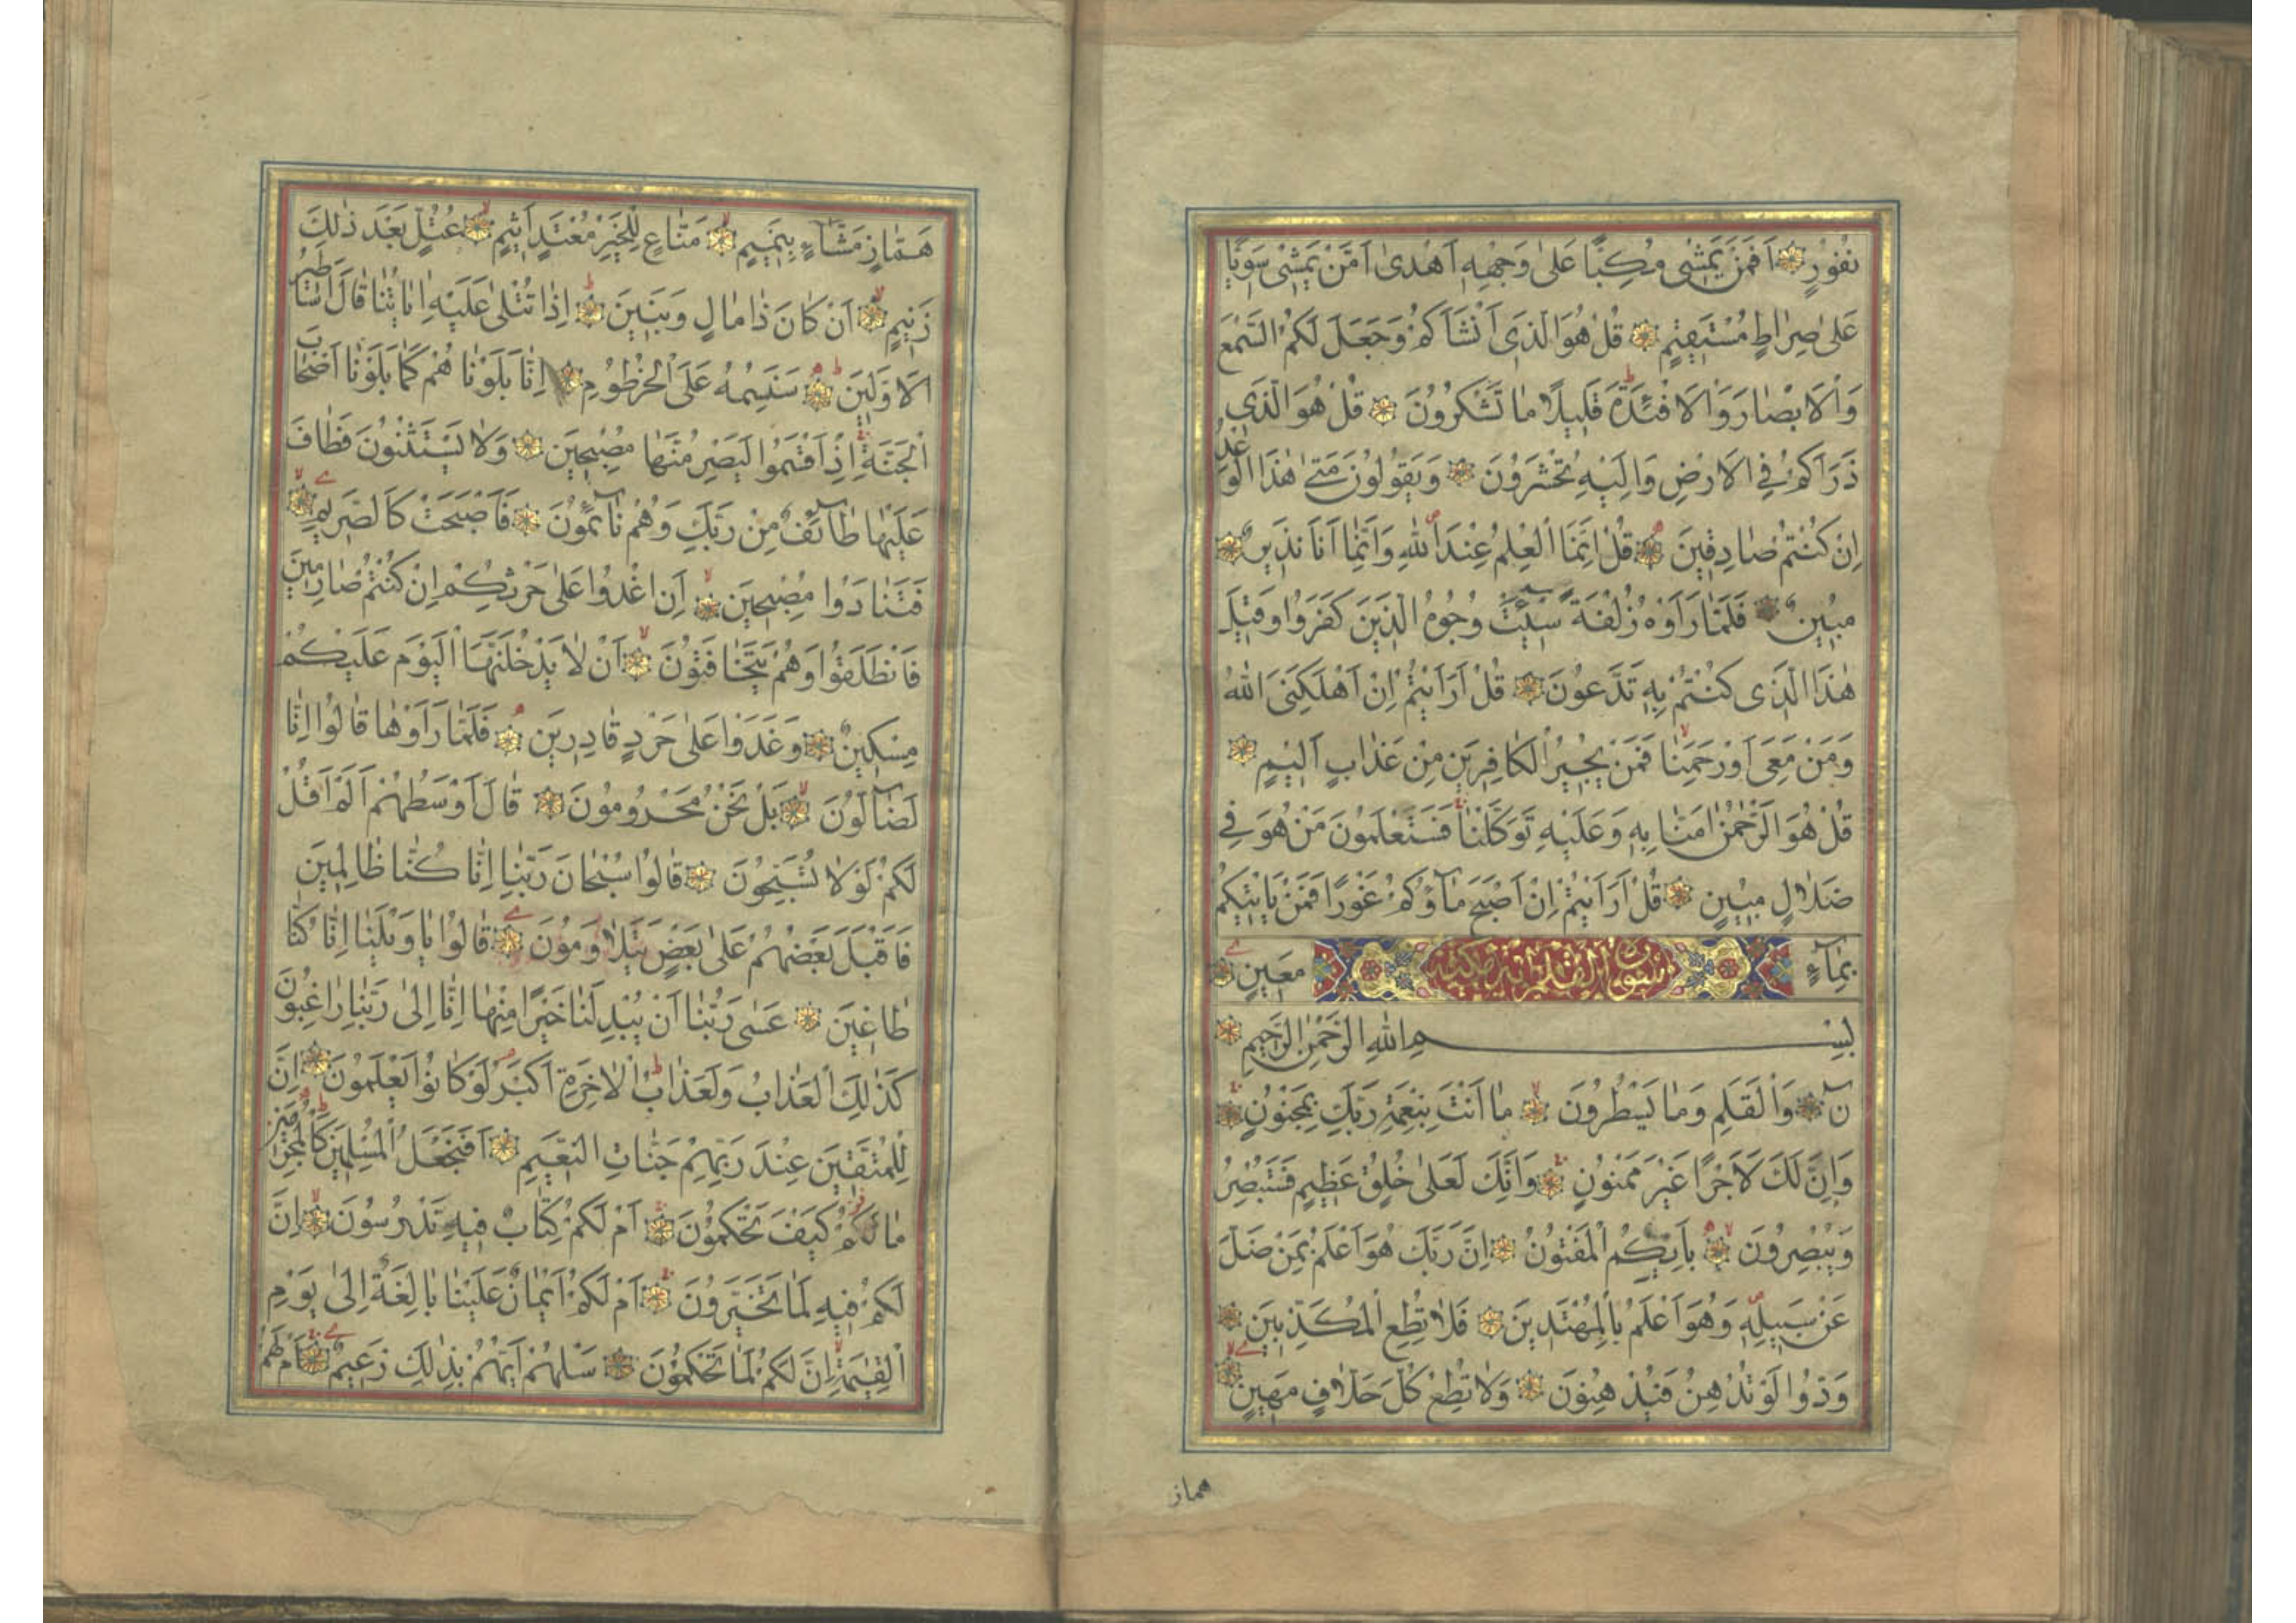 نُفُورٍ اَفَمَنْ يَمْشٖى مُكِبًّا عَلٰى وَجْهِهٖ اَهْدٰى اَمَّنْ يَمْشٖى سَوِيًّا
عَلٰى صِرَاطٍ مُسْتَقٖيمٍ قُلْ هُوَ الَّذٖى اَنْشَاَكُمْ وَجَعَلَ لَكُمُ السَّمْعَ
وَالْاَبْصَارَ وَالْاَفْئِدَةَ قَلٖيلًا مَا تَشْكُرُونَ قُلْ هُوَ الَّذٖى
ذَرَاَكُمْ فِى الْاَرْضِ وَاِلَيْهِ تُحْشَرُونَ وَيَقُولُونَ مَتٰى هٰذَا الْوَعْدُ
اِنْ كُنْتُمْ صَادِقٖينَ قُلْ اِنَّمَا الْعِلْمُ عِنْدَ اللّٰهِ وَاِنَّمَا اَنَا نَذٖيرٌ
مُبٖينٌ فَلَمَّا رَاَوْهُ زُلْفَةً سٖيـَٔتْ وُجُوهُ الَّذٖينَ كَفَرُوا وَقٖيلَ
هٰذَا الَّذٖى كُنْتُمْ بِهٖ تَدَّعُونَ قُلْ اَرَاَيْتُمْ اِنْ اَهْلَكَنِىَ اللّٰهُ
وَمَنْ مَعِىَ اَوْ رَحِمَنَا فَمَنْ يُجٖيرُ الْكَافِرٖينَ مِنْ عَذَابٍ اَلٖيمٍ
قُلْ هُوَ الرَّحْمٰنُ اٰمَنَّا بِهٖ وَعَلَيْهِ تَوَكَّلْنَا فَسَتَعْلَمُونَ مَنْ هُوَ فٖى
ضَلَالٍ مُبٖينٍ قُلْ اَرَاَيْتُمْ اِنْ اَصْبَحَ مَاؤُكُمْ غَوْرًا فَمَنْ يَاْتٖيكُمْ
بِمَاءٍ سورة القلم مكية مَعٖينٍ
بِسْمِ اللّٰهِ الرَّحْمٰنِ الرَّحٖيمِ
نٓ وَالْقَلَمِ وَمَا يَسْطُرُونَ مَا اَنْتَ بِنِعْمَةِ رَبِّكَ بِمَجْنُونٍ
وَاِنَّ لَكَ لَاَجْرًا غَيْرَ مَمْنُونٍ وَاِنَّكَ لَعَلٰى خُلُقٍ عَظٖيمٍ فَسَتُبْصِرُ
وَيُبْصِرُونَ بِاَيِّكُمُ الْمَفْتُونُ اِنَّ رَبَّكَ هُوَ اَعْلَمُ بِمَنْ ضَلَّ
عَنْ سَبٖيلِهٖ وَهُوَ اَعْلَمُ بِالْمُهْتَدٖينَ فَلَا تُطِعِ الْمُكَذِّبٖينَ
وَدُّوا لَوْ تُدْهِنُ فَيُدْهِنُونَ وَلَا تُطِعْ كُلَّ حَلَّافٍ مَهٖينٍ
هماز
هَمَّازٍ مَشَّاءٍ بِنَمٖيمٍ مَنَّاعٍ لِلْخَيْرِ مُعْتَدٍ اَثٖيمٍ عُتُلٍّ بَعْدَ ذٰلِكَ
زَنٖيمٍ اَنْ كَانَ ذَا مَالٍ وَبَنٖينَ اِذَا تُتْلٰى عَلَيْهِ اٰيَاتُنَا قَالَ اَسَاطٖيرُ
الْاَوَّلٖينَ سَنَسِمُهُ عَلَى الْخُرْطُومِ اِنَّا بَلَوْنَاهُمْ كَمَا بَلَوْنَا اَصْحَابَ
الْجَنَّةِ اِذْ اَقْسَمُوا لَيَصْرِمُنَّهَا مُصْبِحٖينَ وَلَا يَسْتَثْنُونَ فَطَافَ
عَلَيْهَا طَائِفٌ مِنْ رَبِّكَ وَهُمْ نَائِمُونَ فَاَصْبَحَتْ كَالصَّرٖيمِ
فَتَنَادَوْا مُصْبِحٖينَ اَنِ اغْدُوا عَلٰى حَرْثِكُمْ اِنْ كُنْتُمْ صَارِمٖينَ
فَانْطَلَقُوا وَهُمْ يَتَخَافَتُونَ اَنْ لَا يَدْخُلَنَّهَا الْيَوْمَ عَلَيْكُمْ
مِسْكٖينٌ وَغَدَوْا عَلٰى حَرْدٍ قَادِرٖينَ فَلَمَّا رَاَوْهَا قَالُوا اِنَّا
لَضَالُّونَ بَلْ نَحْنُ مَحْرُومُونَ قَالَ اَوْسَطُهُمْ اَلَمْ اَقُلْ
لَكُمْ لَوْلَا تُسَبِّحُونَ قَالُوا سُبْحَانَ رَبِّنَا اِنَّا كُنَّا ظَالِمٖينَ
فَاَقْبَلَ بَعْضُهُمْ عَلٰى بَعْضٍ يَتَلَاوَمُونَ قَالُوا يَا وَيْلَنَا اِنَّا كُنَّا
طَاغٖينَ عَسٰى رَبُّنَا اَنْ يُبْدِلَنَا خَيْرًا مِنْهَا اِنَّا اِلٰى رَبِّنَا رَاغِبُونَ
كَذٰلِكَ الْعَذَابُ وَلَعَذَابُ الْاٰخِرَةِ اَكْبَرُ لَوْ كَانُوا يَعْلَمُونَ اِنَّ
لِلْمُتَّقٖينَ عِنْدَ رَبِّهِمْ جَنَّاتِ النَّعٖيمِ اَفَنَجْعَلُ الْمُسْلِمٖينَ كَالْمُجْرِمٖينَ
مَا لَكُمْ كَيْفَ تَحْكُمُونَ اَمْ لَكُمْ كِتَابٌ فٖيهِ تَدْرُسُونَ اِنَّ
لَكُمْ فٖيهِ لَمَا تَخَيَّرُونَ اَمْ لَكُمْ اَيْمَانٌ عَلَيْنَا بَالِغَةٌ اِلٰى يَوْمِ
الْقِيٰمَةِ اِنَّ لَكُمْ لَمَا تَحْكُمُونَ سَلْهُمْ اَيُّهُمْ بِذٰلِكَ زَعٖيمٌ اَمْ لَهُمْ